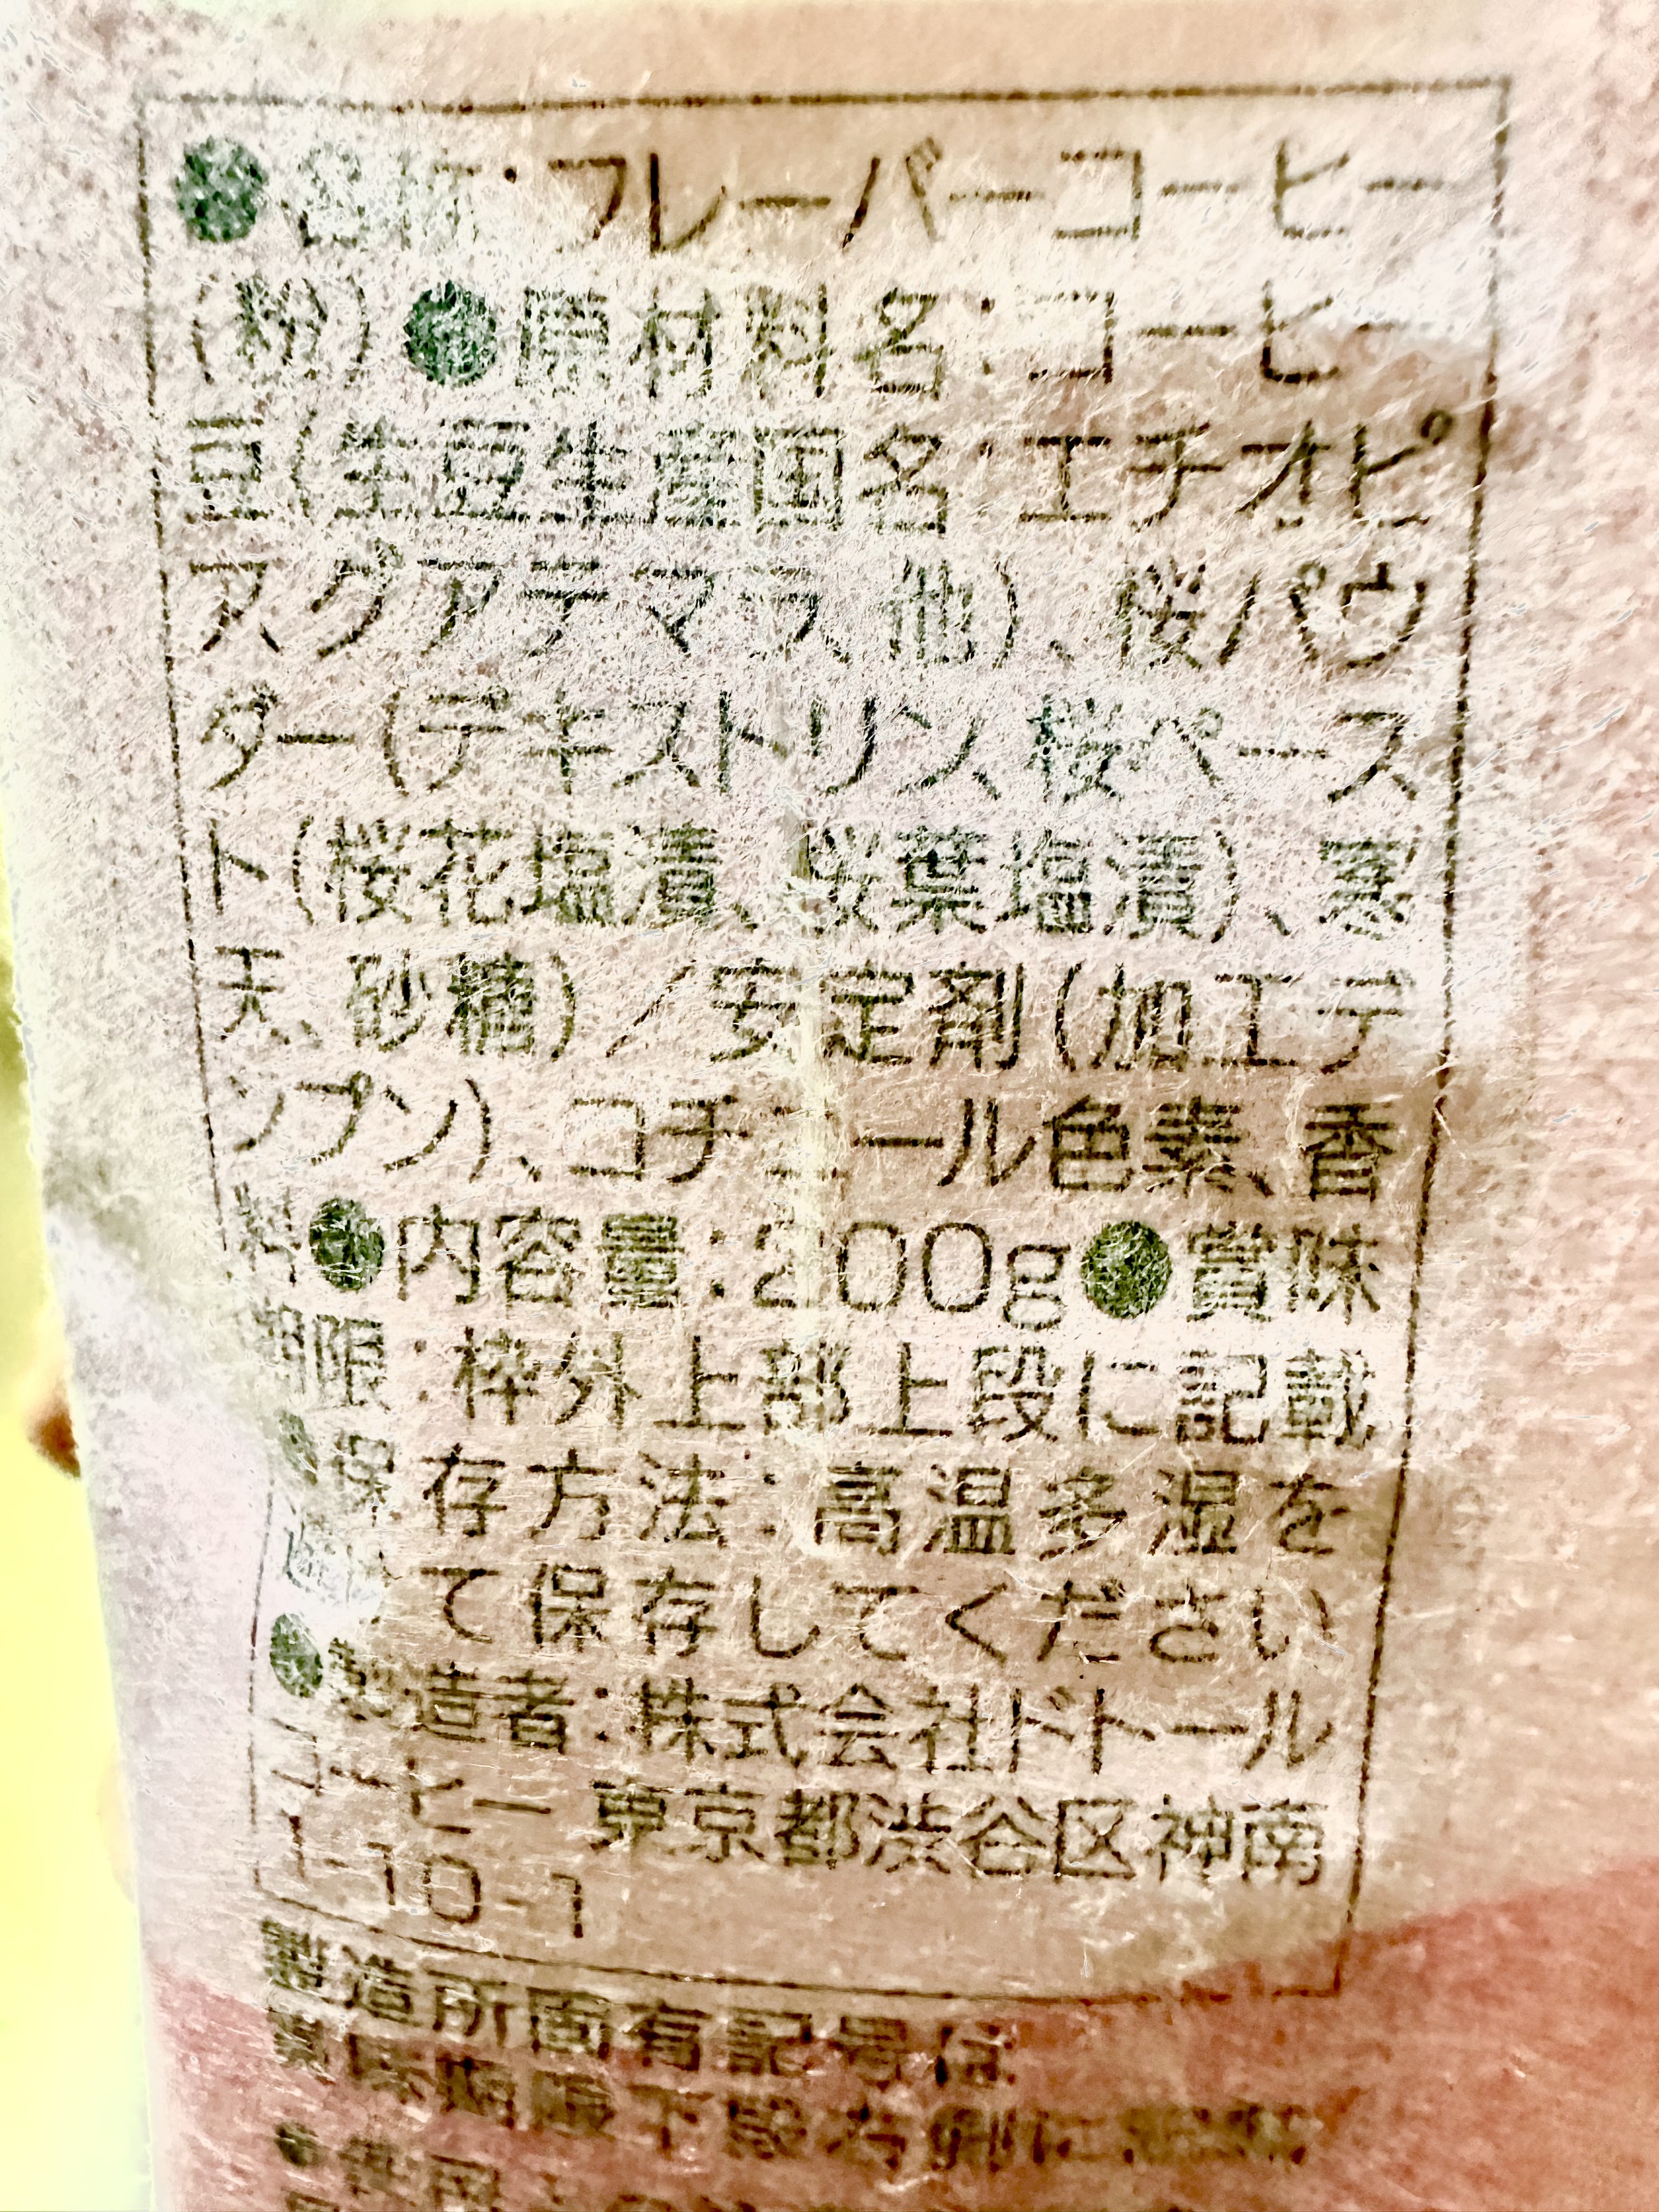 ●名称:フレーバーコーヒー
(粉) ●原材料名:コーヒー
豆(生豆生産国名:エチオピ
ア、グアテマラ、他)、桜パウ
ダー(デキストリン、桜ペース
ト(桜花塩漬、桜葉塩漬)、寒
天、砂糖)/安定剤(加工デ
ンプン)、コチニール色素、香
料●内容量:200g●賞味
期限:枠外上部上段に記載
●保存方法:高温多湿を
て保存してください
●製造者:株式会社ドトール
コーヒー 東京都渋谷区神南
1-10-1
製造所固有記号は
賞味期限下段右側に記載